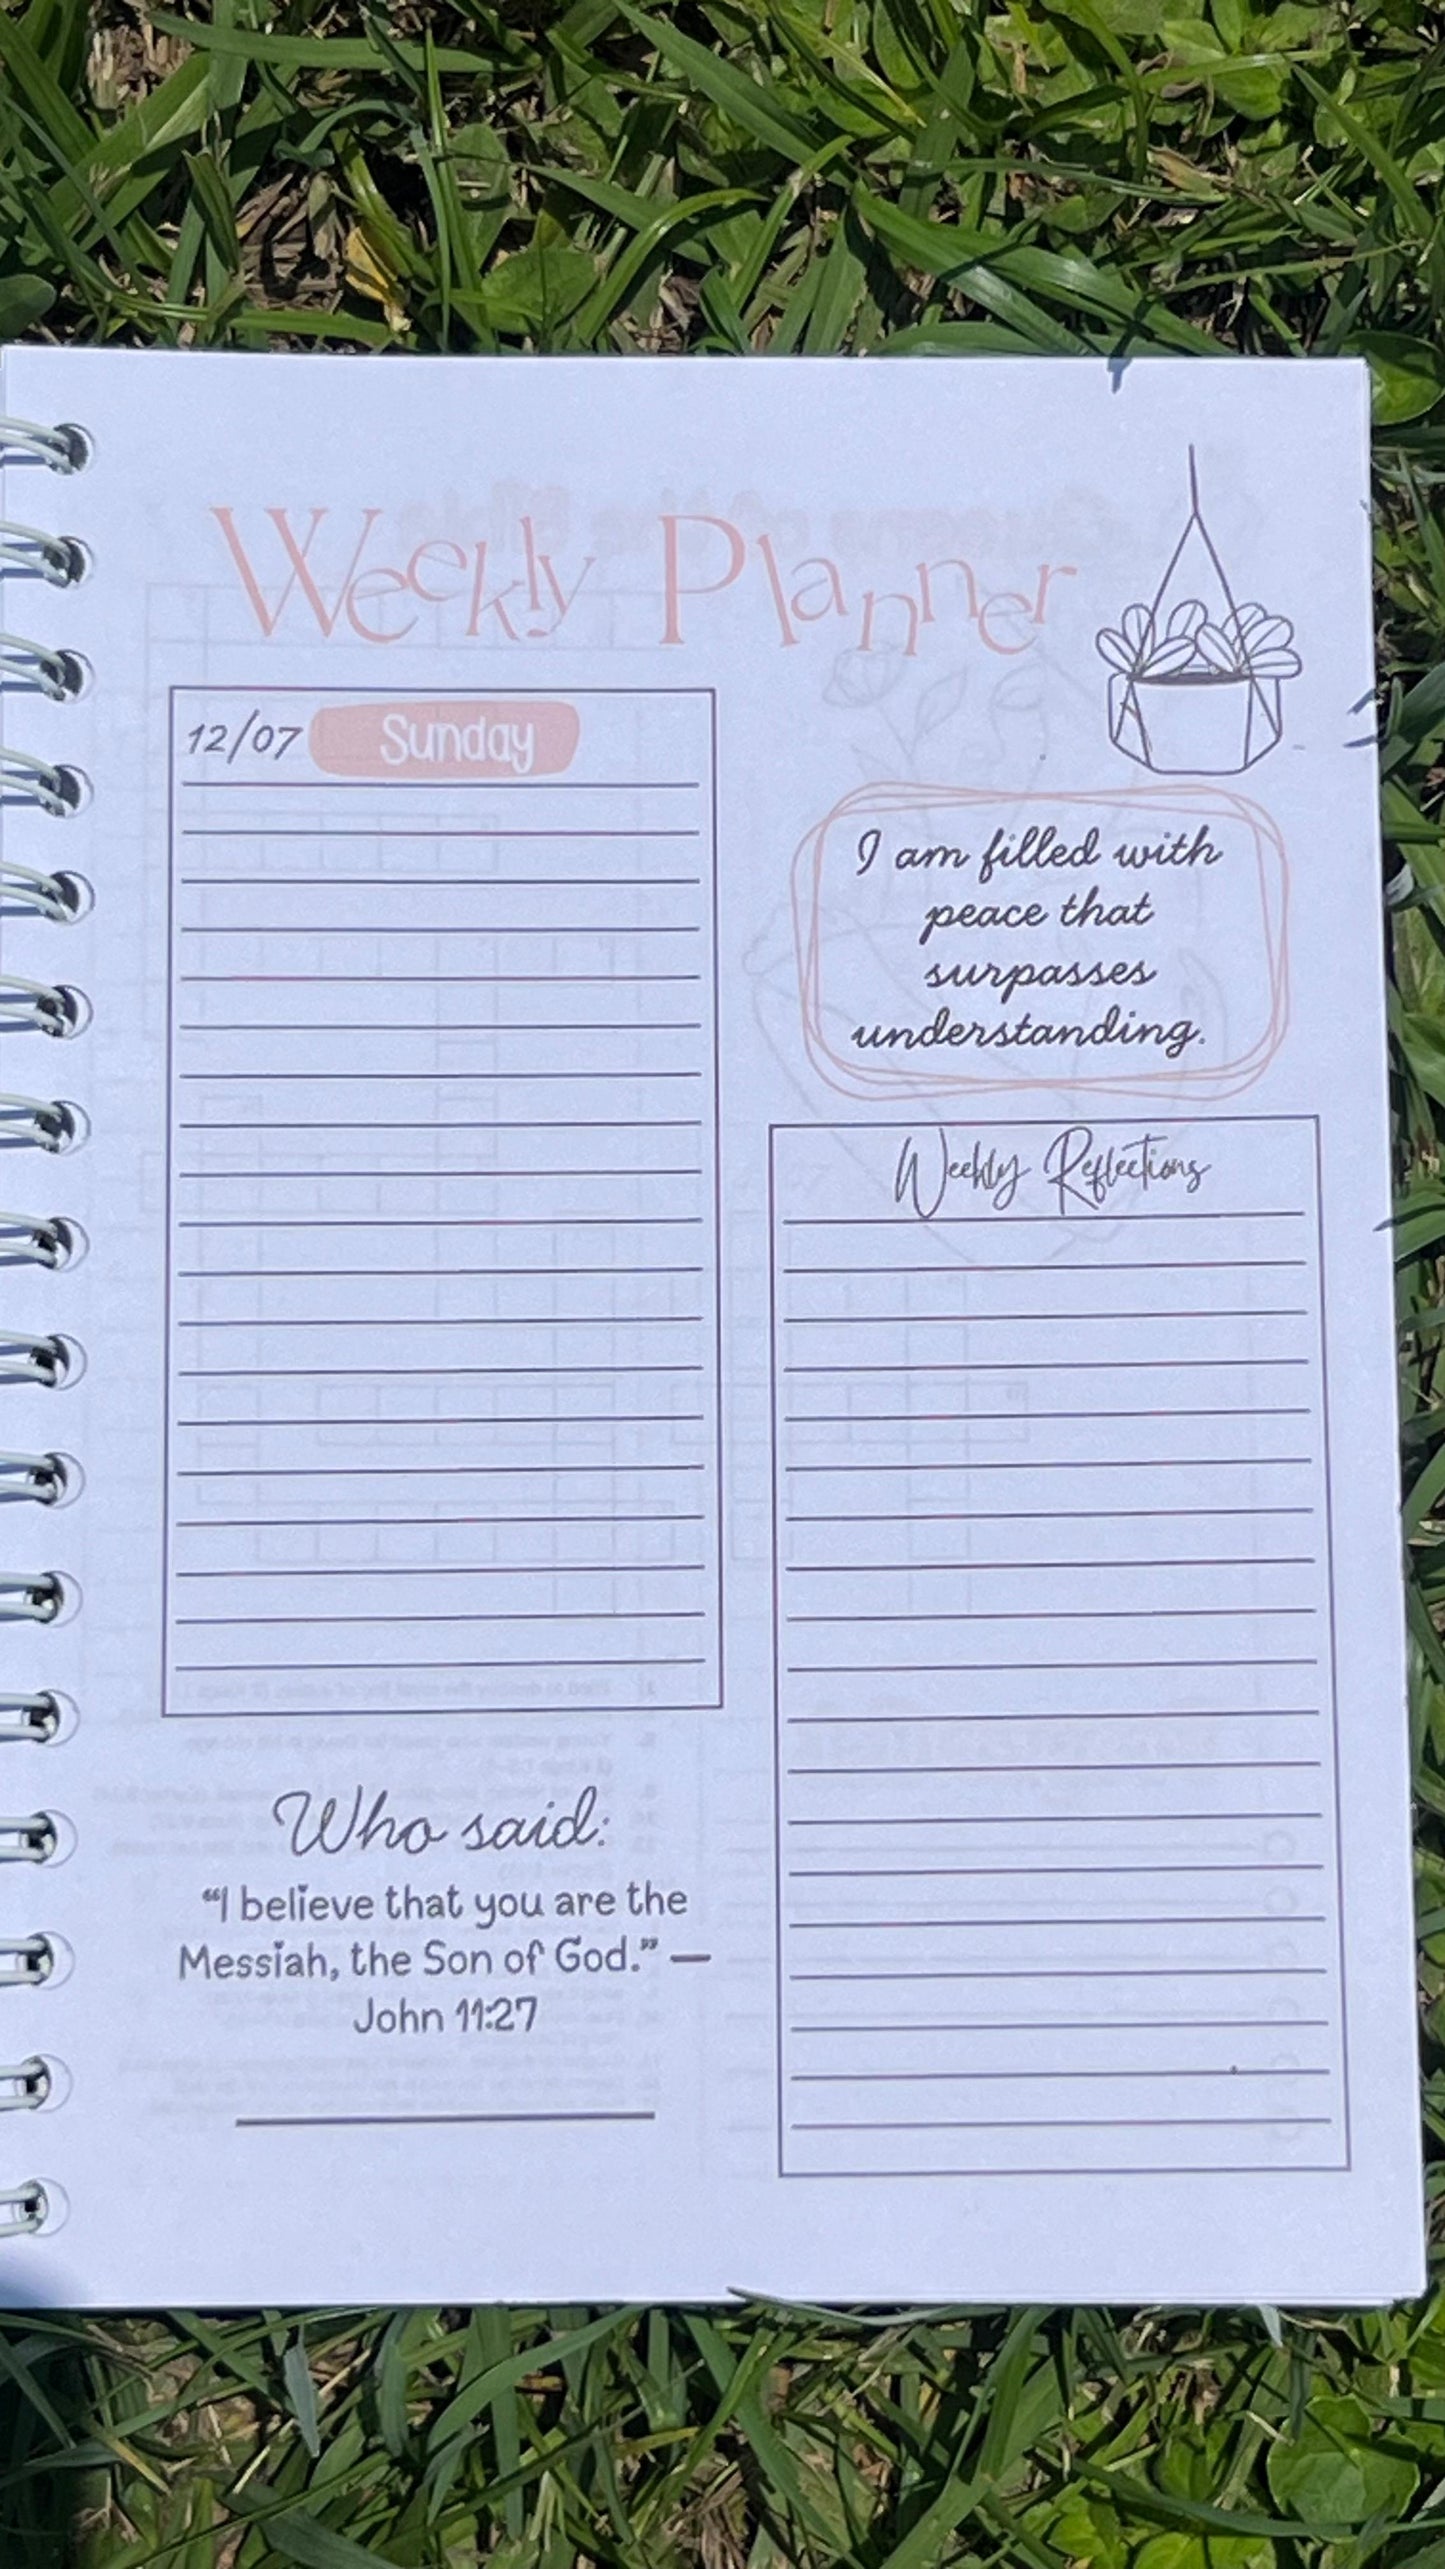 Weekly Planner
12/07 Sunday
I am filled with
peace that
surpasses
understanding.
Weekly Reflections
Who said:
“I believe that you are the
Messiah, the Son of God.” —
John 11:27